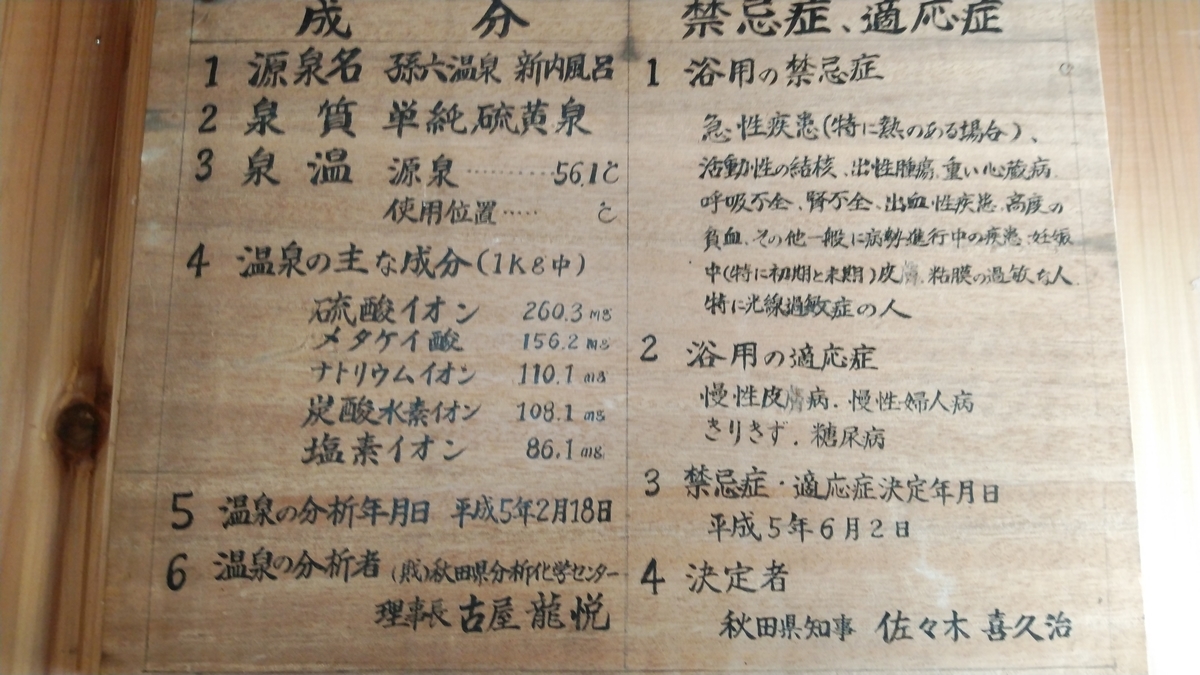 成分
1 源泉名 孫六温泉 新内風呂
2 泉質 単純硫黄泉
3 泉温 源泉………56.1℃
使用位置…… ℃
4 温泉の主な成分(1Kg中)
硫酸イオン 260.3mg
メタケイ酸 156.2mg
ナトリウムイオン 110.1mg
炭酸水素イオン 108.1mg
塩素イオン 86.1mg
5 温泉の分析年月日 平成5年2月18日
6 温泉の分析者 (財)秋田県分析化学センター
理事長 古屋龍悦
禁忌症、適応症
1 浴用の禁忌症
急性疾患(特に熱のある場合)、
活動性の結核、出性腫瘍、重い心蔵病、
呼吸不全、腎不全、出血性疾患、高度の
貧血、その他一般に病勢進行中の疾患、妊娠
中(特に初期と末期)皮膚、粘膜の過敏な人
特に光線過敏症の人
2 浴用の適応症
慢性皮膚病、慢性婦人病
きりきず、糖尿病
3 禁忌症・適応症決定年月日
平成5年6月2日
4 決定者
秋田県知事 佐々木喜久治